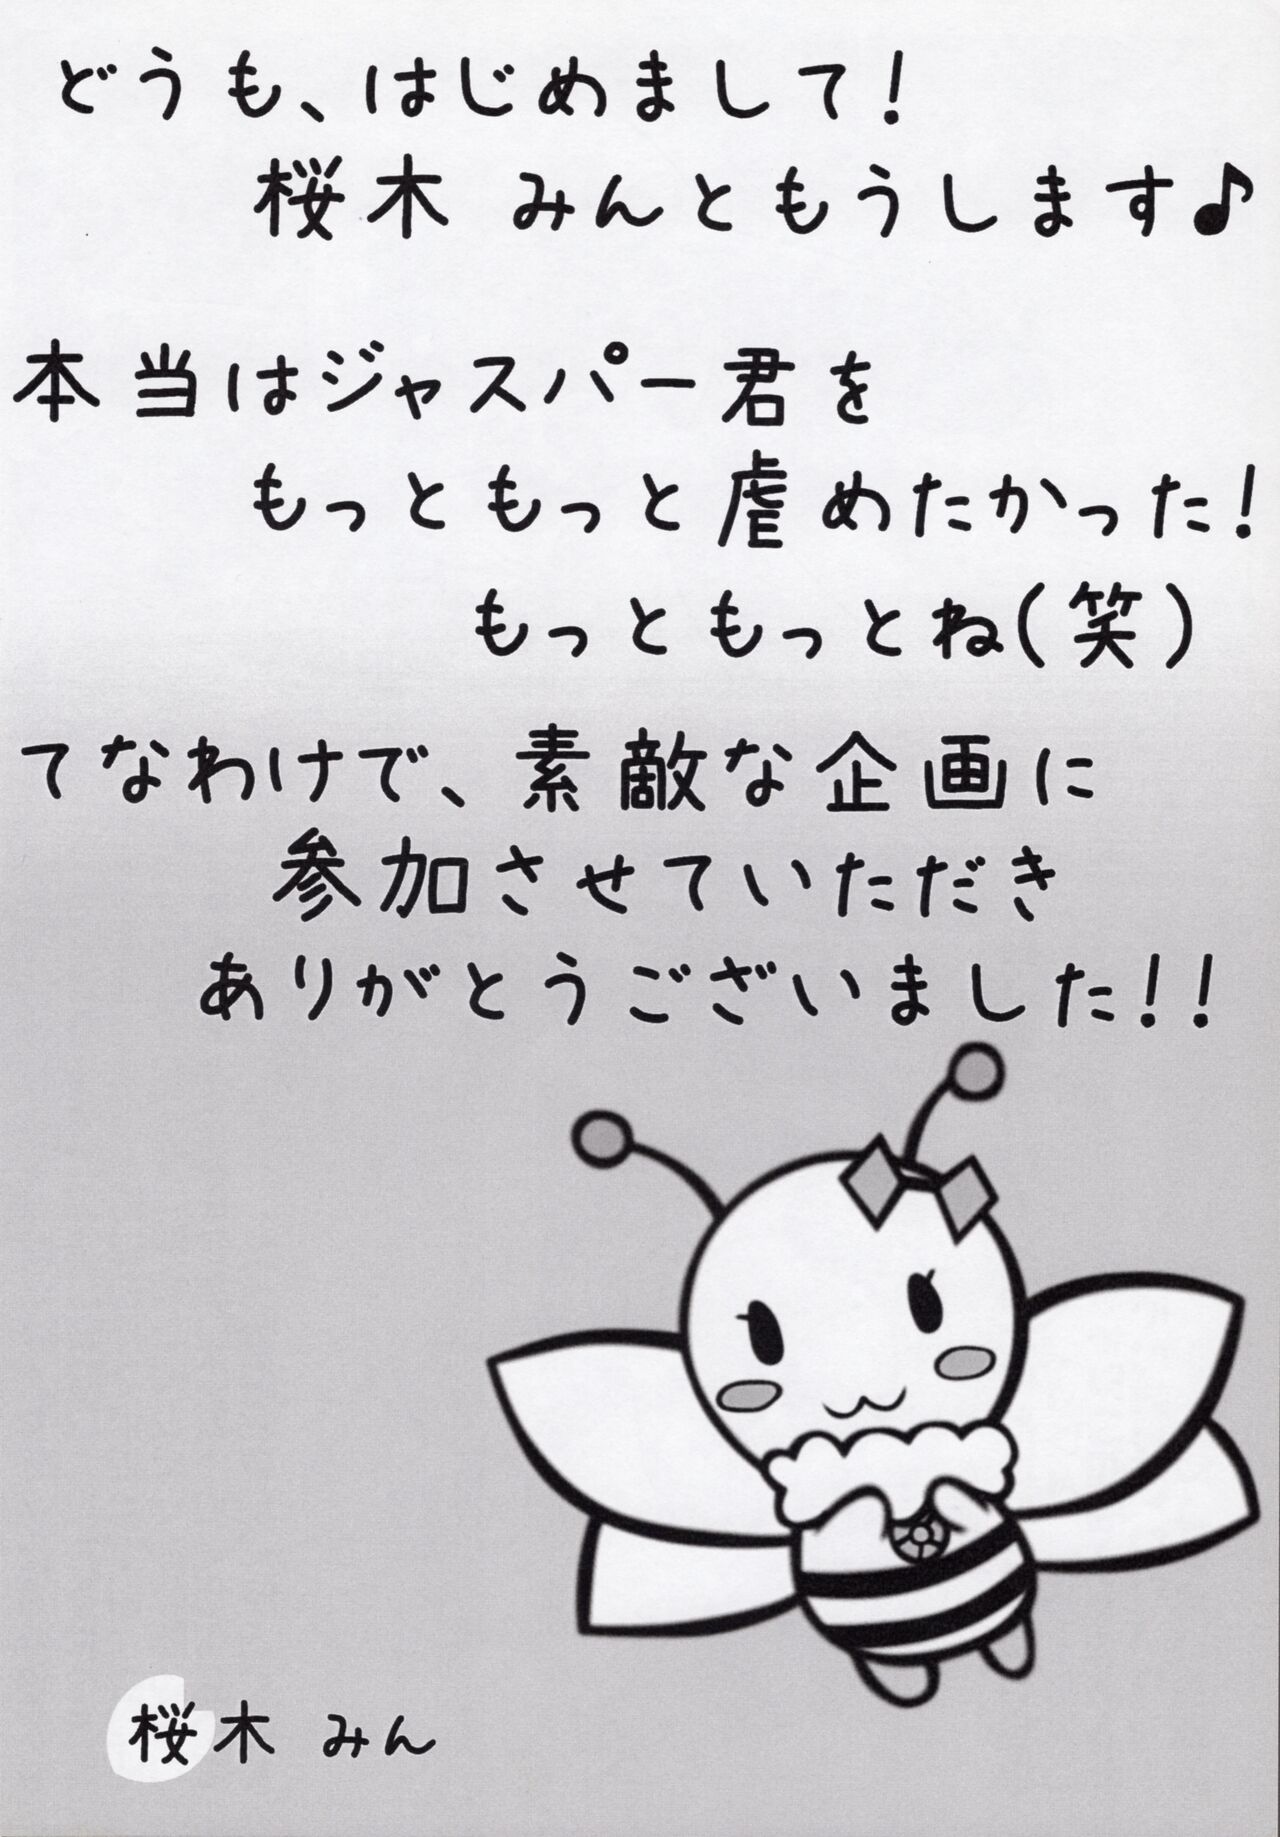 どうも、はじめまして！
桜木 みんともうします♪
本当はジャスパー君を
もっともっと虐めたかった！
もっともっとね(笑)
てなわけで、素敵な企画に
参加させていただき
ありがとうございました！！
桜木 みん